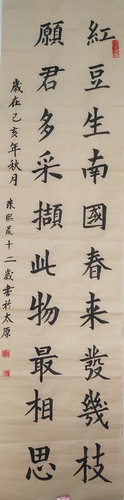 紅豆生南國春来發幾枝
願君多采擷此物最相思
歲在己亥年秋月 陈熙宸十二歲書於太原